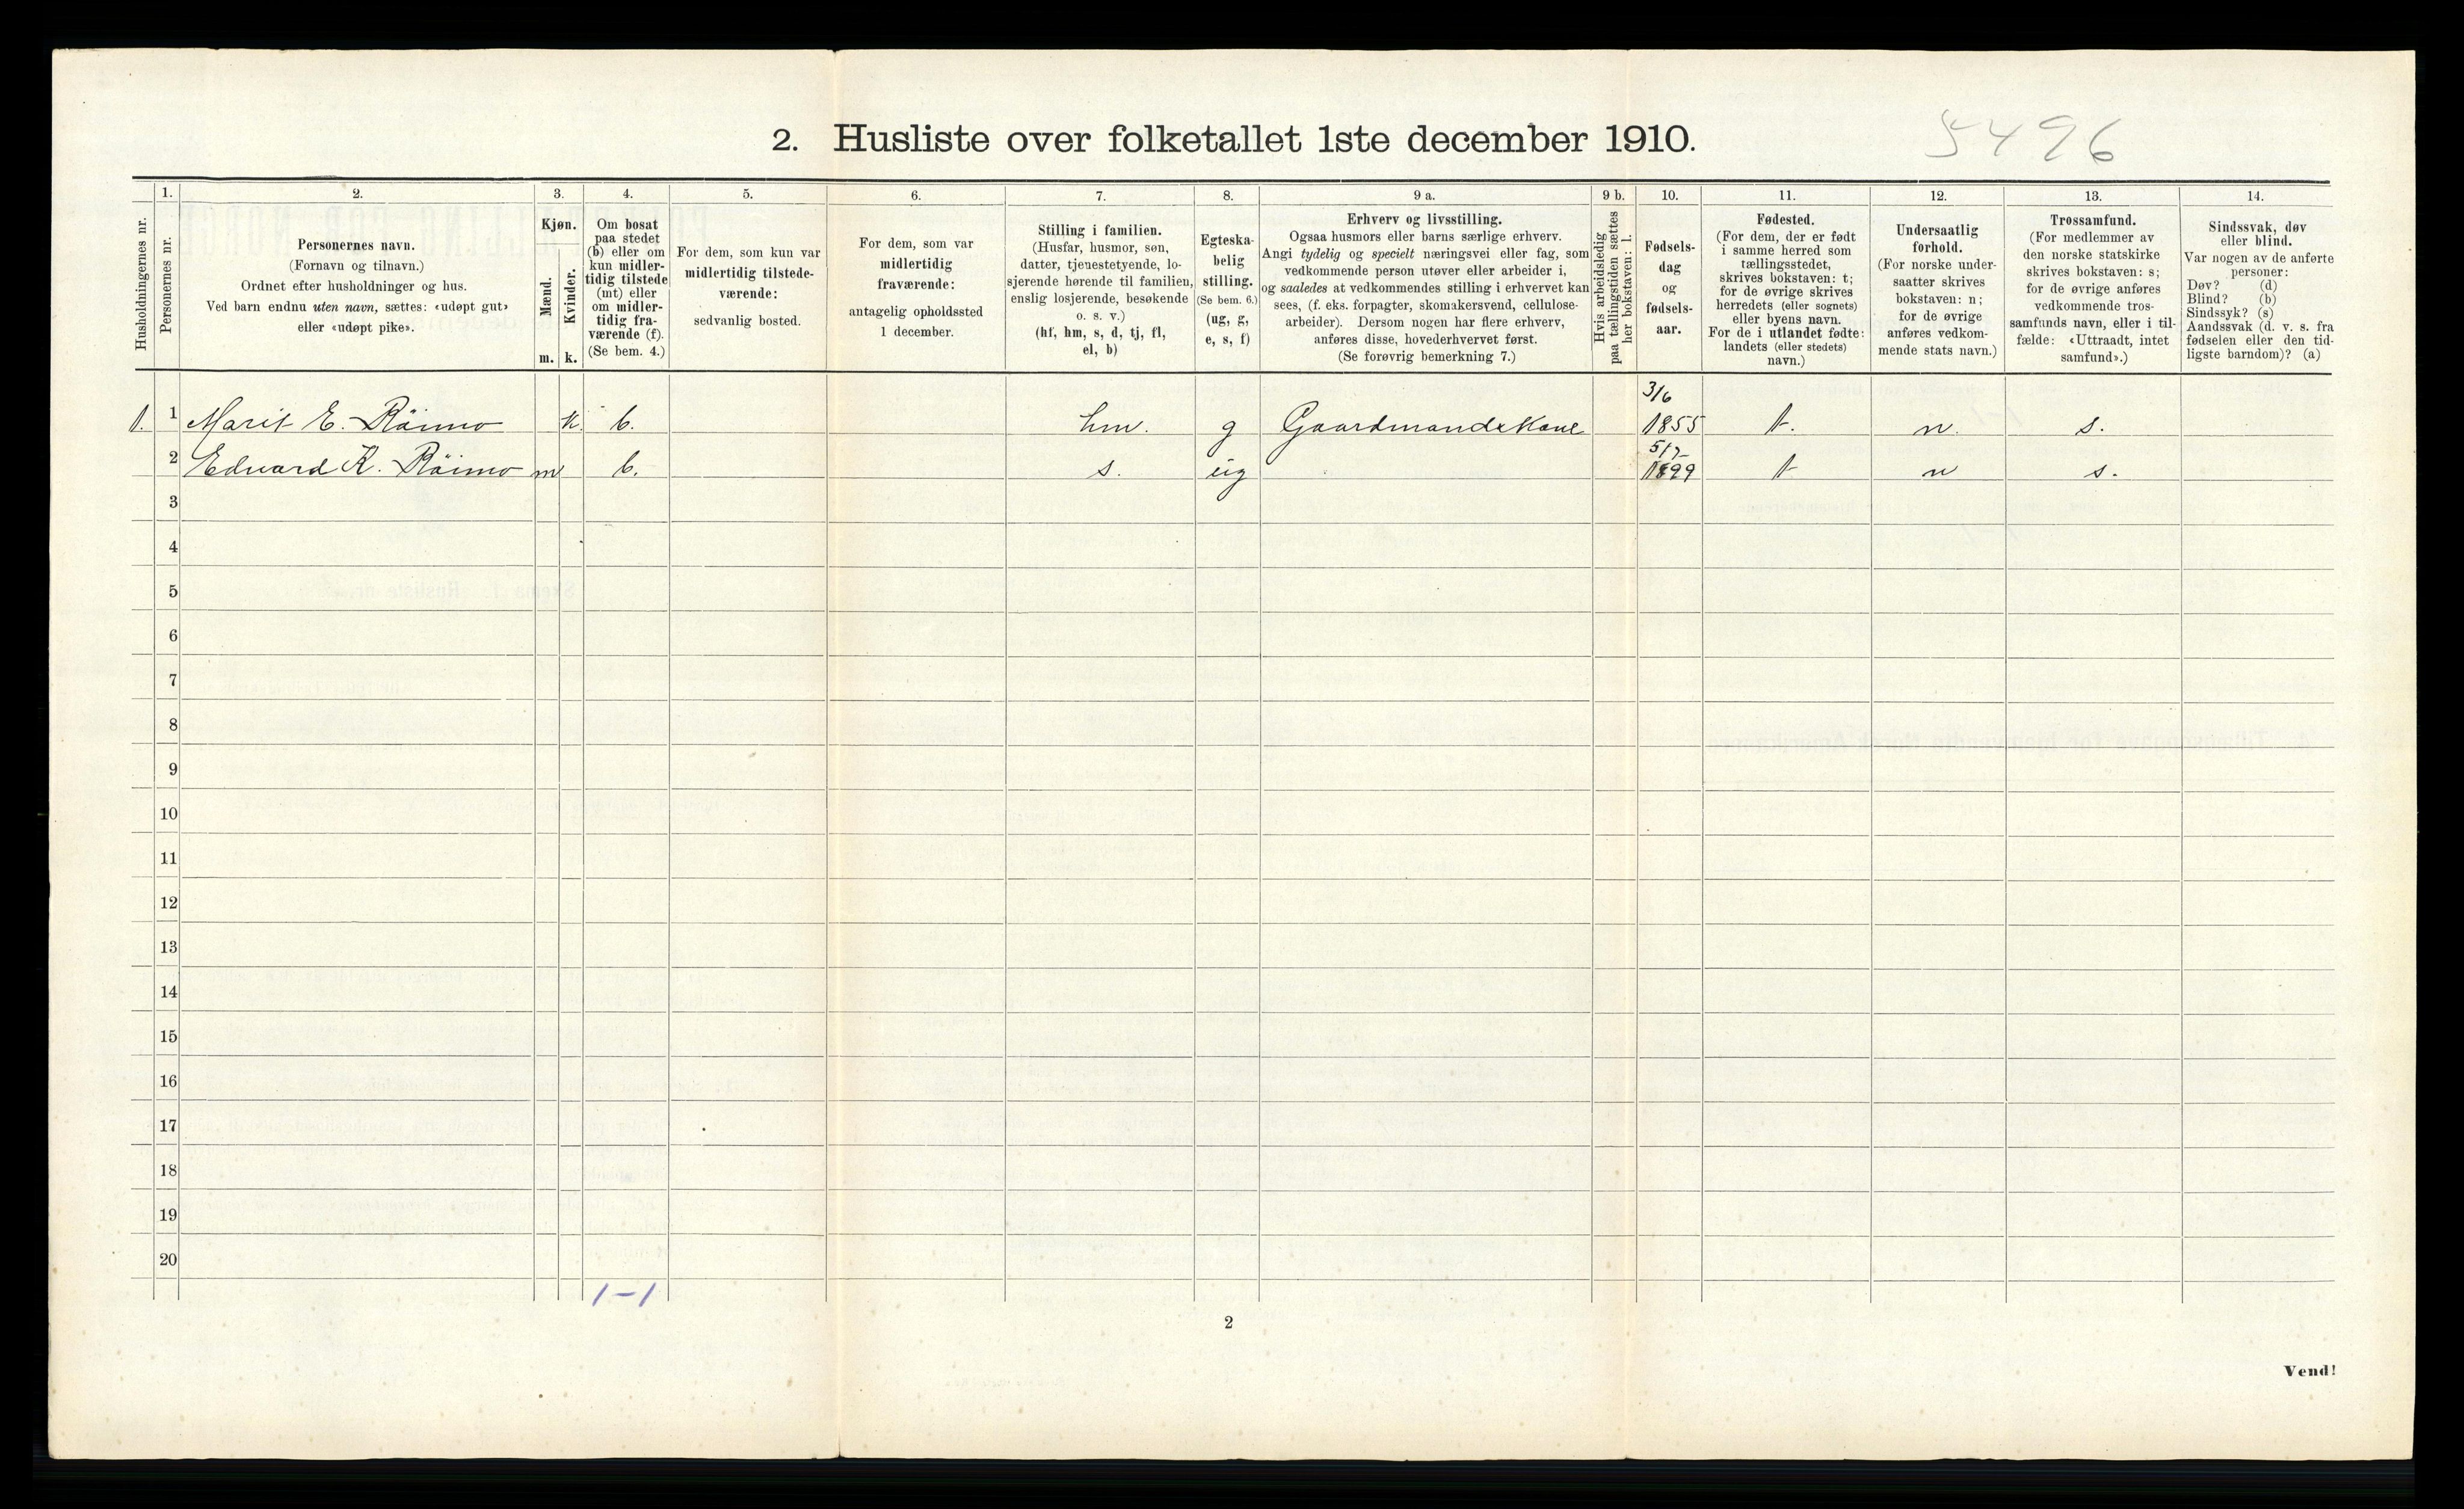 2. Husliste over folketallet 1ste december 1910.
5496
Husholdningernes nr.
1.
Personernes nr.
2.
Personernes navn.
(Fornavn og tilnavn.)
Ordnet efter husholdninger og hus.
Ved barn endnu uten navn, sættes: «udøpt gut»
eller «udøpt pike».
3.
Kjøn.
Mænd.
Kvinder.
m. k.
4.
Om bosat
paa stedet
(b) eller om
kun midler-
tidig tilstede
(mt) eller
om midler-
tidig fra-
værende (f).
(Se bem. 4.)
5.
For dem, som kun var
midlertidig tilstede-
værende:
sedvanlig bosted.
6.
For dem, som var
midlertidig
fraværende:
antagelig opholdssted
1 december.
7.
Stilling i familien.
(Husfar, husmor, søn,
datter, tjenestetyende, lo-
sjerende hørende til familien,
enslig losjerende, besøkende
o. s. v.)
(hf, hm, s, d, tj, fl,
el, b)
8.
Egteska-
belig
stilling.
(Se bem. 6.)
(ug, g,
e, s, f)
9 a.
Erhverv og livsstilling.
Ogsaa husmors eller barns særlige erhverv.
Angi tydelig og specielt næringsvei eller fag, som
vedkommende person utøver eller arbeider i,
og saaledes at vedkommendes stilling i erhvervet kan
sees, (f. eks. forpagter, skomakersvend, cellulose-
arbeider). Dersom nogen har flere erhverv,
anføres disse, hovederhvervet først.
(Se forøvrig bemerkning 7.)
9 b.
Hvis arbeidsledig
paa tællingstiden sættes
her bokstaven: l.
10.
Fødsels-
dag
og
fødsels-
aar.
11.
Fødested.
(For dem, der er født
i samme herred som
tællingsstedet,
skrives bokstaven: t;
for de øvrige skrives
herredets (eller sognets)
eller byens navn.
For de i utlandet fødte:
landets (eller stedets)
navn.)
12.
Undersaatlig
forhold.
(For norske under-
saatter skrives
bokstaven: n;
for de øvrige
anføres vedkom-
mende stats navn.)
13.
Trossamfund.
(For medlemmer av
den norske statskirke
skrives bokstaven: s;
for de øvrige anføres
vedkommende tros-
samfunds navn, eller i til-
fælde: «Uttraadt, intet
samfund».)
14.
Sindssvak, døv
eller blind.
Var nogen av de anførte
personer:
Døv? (d)
Blind? (b)
Sindssyk? (s)
Aandssvak (d. v. s. fra
fødselen eller den tid-
ligste barndom)? (a)
3/6
1. 1 Marit E. Röimo k. b. hm. g Gaardmandskone 1855 t. n. s.
5/7
2 Edvard K. Röimo m b. s. ug 1899 t n s.
3
4
5
6
7
8
9
10
11
12
13
14
15
16
17
18
19
20
1-1
2
Vend!